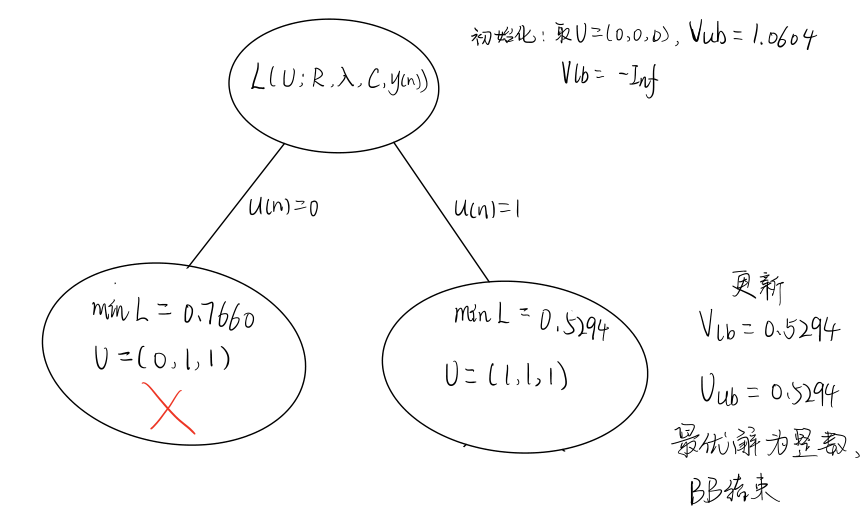 初始化: 取U=(0,0,0), Vub = 1.0604
Vlb = -Inf
L(U; R,λ,C,y(n))
U(n)=0
U(n)=1
min L = 0.7660
U=(0,1,1)
min L = 0.5294
U=(1,1,1)
更新
Vlb = 0.5294
Uub = 0.5294
最优解为整数,
BB结束